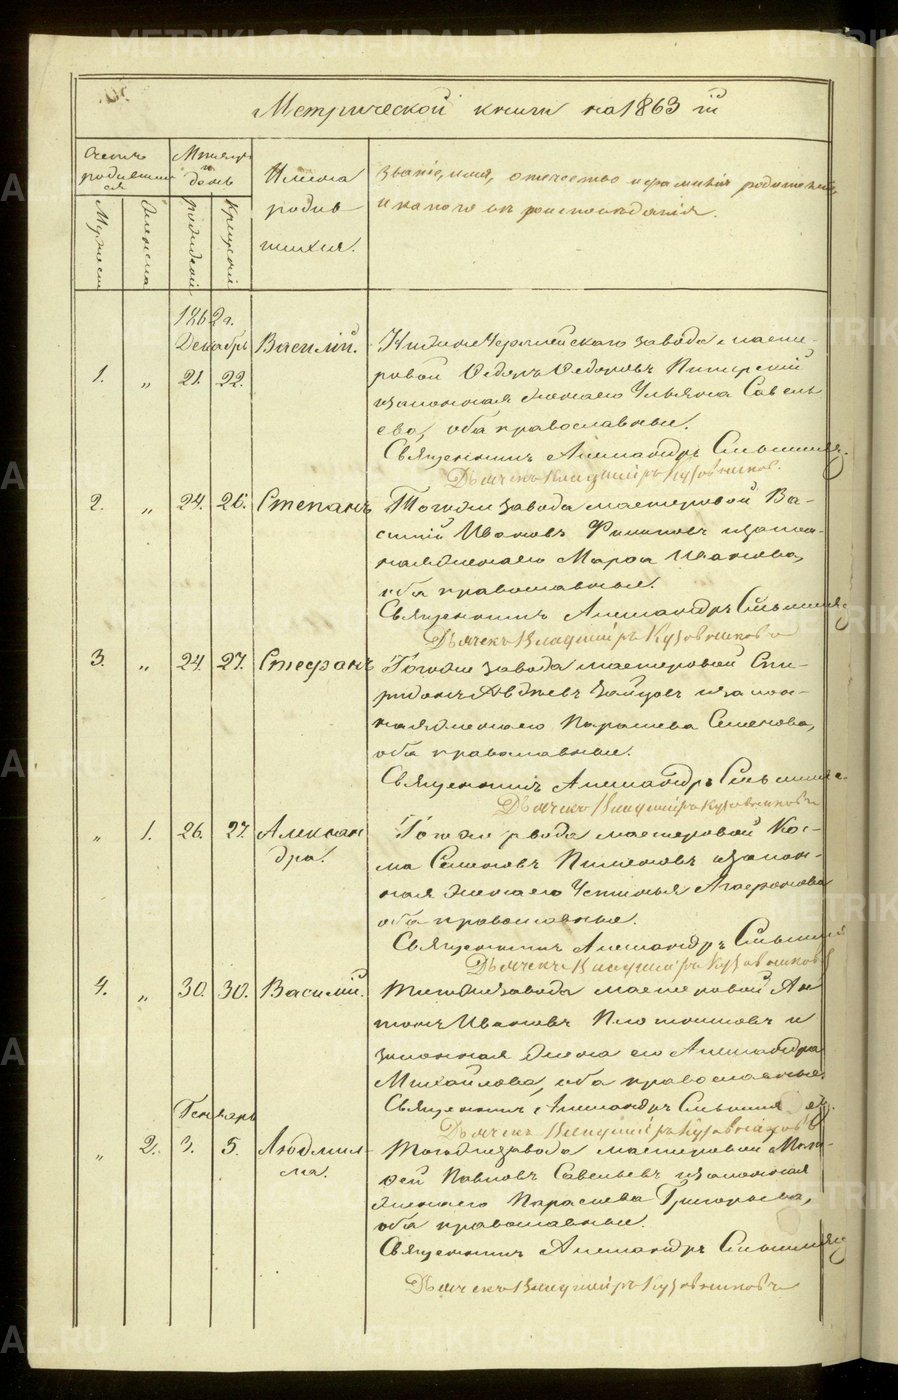 METRIKI.GASO-URAL.RU
Метрической книги на 1863 й
Счетъ родившихся
Мужеска
Женска
Мѣсяцъ и день
рожденій
крещеній
Имена
родив
шихся.
Званіе, имя, отчество и фамилія родителей,
и какого вѣроисповѣданія.
1862 г.
Декабрь
1. „ 21. 22. Василій.
завода масте-
ровой Ѳедоръ Ѳедоровъ
законная жена его Ульяна Савель
ева, оба православные.
Священникъ Александръ
Дьячекъ Владиміръ Кузовниковъ
2. „ 24. 26. Степанъ
Тогоже завода мастеровой Ва-
силій Ивановъ изакон-
ная жена его Марѳа Иванова,
оба православные.
Священникъ Александръ
Дьячекъ Владиміръ Кузовниковъ
3. „ 24. 27. Стефанъ
Тогоже завода мастеровой Спи-
ридонъ Авдѣевъ Зайцовъ изакон-
ная жена его Параскева Семенова,
оба православные.
Священникъ Александръ
Дьячекъ Владиміръ Кузовниковъ
„ 1. 26. 27. Алексан
дра.
Тогоже завода мастеровой Кос-
ма Семеновъ Пименовъ изакон-
ная жена его Устинья Агафонова
оба православные.
Священникъ Александръ
Дьячекъ Владиміръ Кузовниковъ
4. „ 30. 30. Василій.
Тогоже завода мастеровой Ан
тонъ Ивановъ Плотниковъ и
законная жена его Александра
Михайлова, оба православные.
Священникъ Александръ
Генварь
Дьячекъ Владиміръ Кузовниковъ
„ 2. 3. 5. Людмил-
ла.
Тогоже завода мастеровой
Павловъ Савельевъ изаконная
жена его Параскева Григорьева,
оба православные.
Священникъ Александръ
Дьячекъ Владиміръ Кузовниковъ